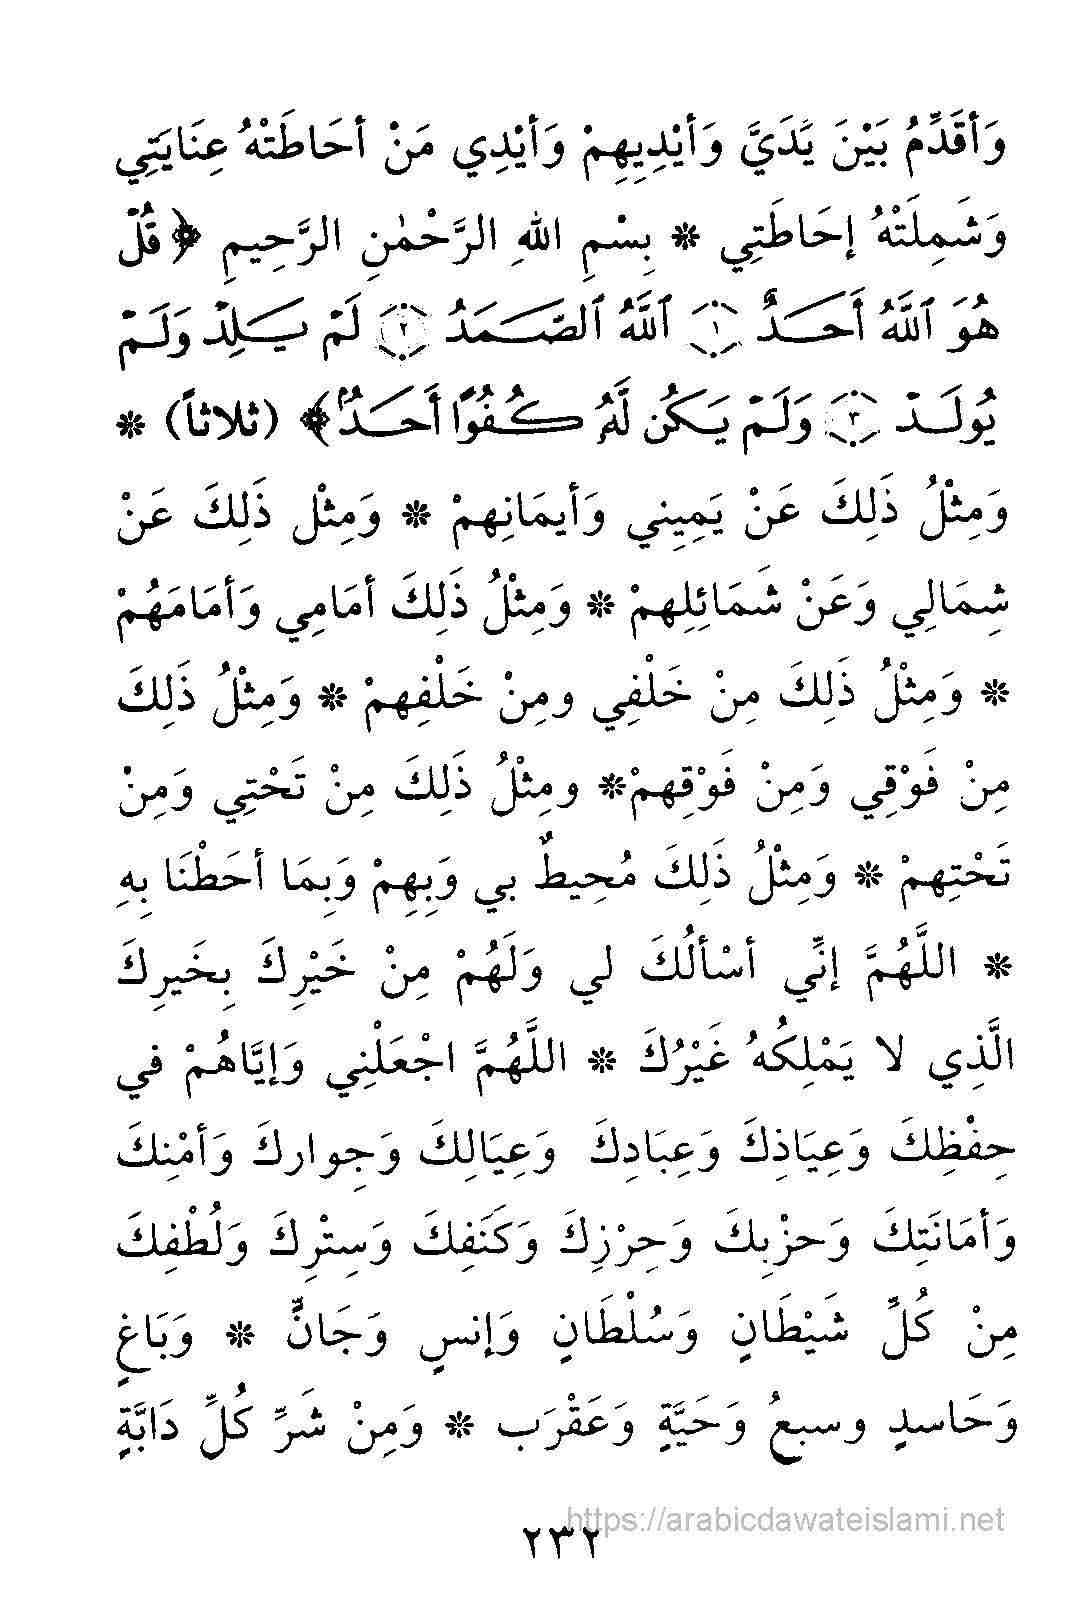 وَأقَدِّمُ بَيْنَ يَدَيَّ وَأيْدِيِهِمْ وَأيْدِي مَنْ أحَاطَتْهُ عِنَايَتِي
وَشَمِلَتْهُ إحَاطَتِي * بِسْمِ اللهِ الرَّحْمٰنِ الرَّحِيمِ ﴿قُلْ
هُوَ ٱللَّهُ أَحَدٌ ١ ٱللَّهُ ٱلصَّمَدُ ٢ لَمْ يَلِدْ وَلَمْ
يُولَدْ ٣ وَلَمْ يَكُن لَّهُۥ كُفُوًا أَحَدٌۢ﴾ (ثلاثاً) *
وَمِثْلُ ذَلِكَ عَنْ يَمِيِني وَأيمَانِهمْ * وَمِثْل ذَلِكَ عَنْ
شِمَالِي وَعَنْ شَمَائِلِهمْ * وَمِثْلُ ذَلِكَ أمَامِي وَأمَامَهُمْ
* وَمِثْلُ ذَلِكَ مِنْ خَلْفِي ومِنْ خَلْفِهمْ * وَمِثْلُ ذَلِكَ
مِنْ فَوْقِي وَمِنْ فَوْقِهمْ* ومِثْلُ ذَلِكَ مِنْ تَحْتِي وَمِنْ
تَحْتِهمْ * وَمِثْلُ ذَلِكَ مُحِيطٌ بي وَبِهِمْ وَبِمَا أحَطْنَا بِهِ
* اللَّهُمَّ إنِّي أسْألُكَ لي وَلَهُمْ مِنْ خَيْرِكَ بِخَيرِكَ
الَّذِي لا يَمْلِكُهُ غَيْرُكَ * اللَّهُمَّ اجْعَلْنِي وَإيَّاهُمْ في
حِفْظِكَ وَعِيَاذِكَ وَعِبَادِكَ وَعِيَالِكَ وَجِواركَ وَأمْنِكَ
وَأمَانَتِكَ وَحزْبِكَ وَحِرْزِكَ وَكَنَفِكَ وَسِتْرِكَ وَلُطْفِكَ
مِنْ كُلِّ شَيْطَانٍ وَسُلْطَانٍ وَإنسٍ وَجَانٍّ * وَبَاغٍ
وَحَاسدٍ وسبعُ وَحَيَّةٍ وَعَقْرَب * وَمِنْ شَرِّ كُلِّ دَابَّةٍ
https://arabicdawateislami.net
٢٣٢